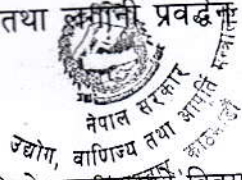 तथा लगानी प्रवर्द्धन
नेपाल सरकार
उद्योग, वाणिज्य तथा आपूर्ति मन्त्रालय